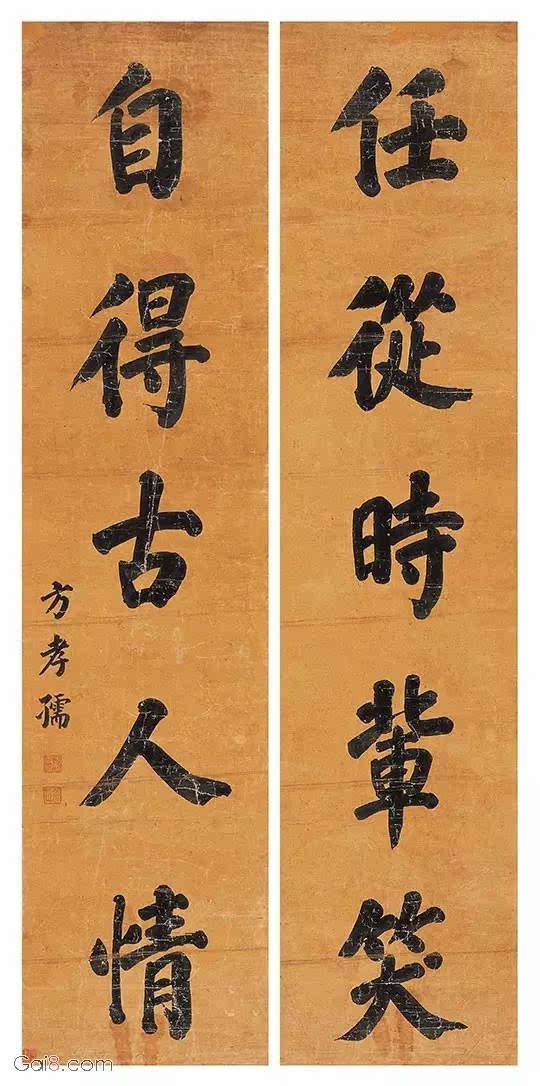 任從時軰笑
自得古人情
方孝孺
Gai8.com